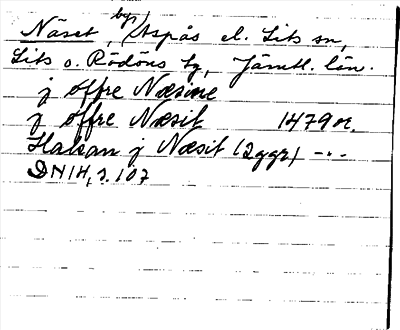 Näset, by, Aspås el. Lits sn,
Lits o. Rödöns tg, Jämtl. län.
j offre Næsine
j offre Næsit 1479 or.
Halsan j Næsit (2ggr) -"-
DN14, s. 107